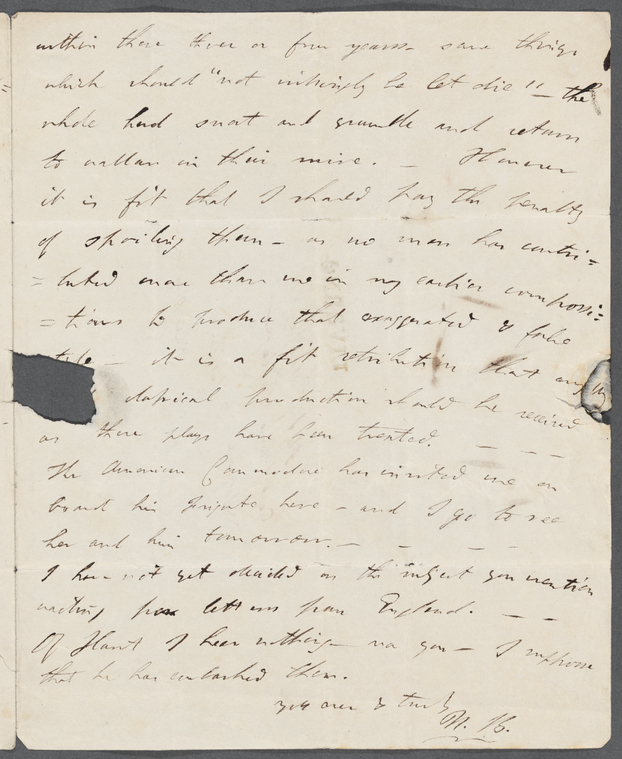 within these three or four years — some things
which should "not willingly be let die" — the
whole herd snort and grumble and return
to wallow in their mire. — However
it is fit that I should pay the penalty
of spoiling them — as no man has contri-
=buted more than me in my earlier composi-
=tions to produce that exaggerated & false
— it is a fit retribution that any
classical production should be received
as these plays have been treated. — — —
The American Commodore has invited me on
board his frigate here — and I go to see
her and him tomorrow. — — —
I have not yet decided on the subject you mention
waiting for letters from England. — —
Of Hunt I hear nothing — nor you — I suppose
that he has embarked then.
yrs ever & truly
N. B.